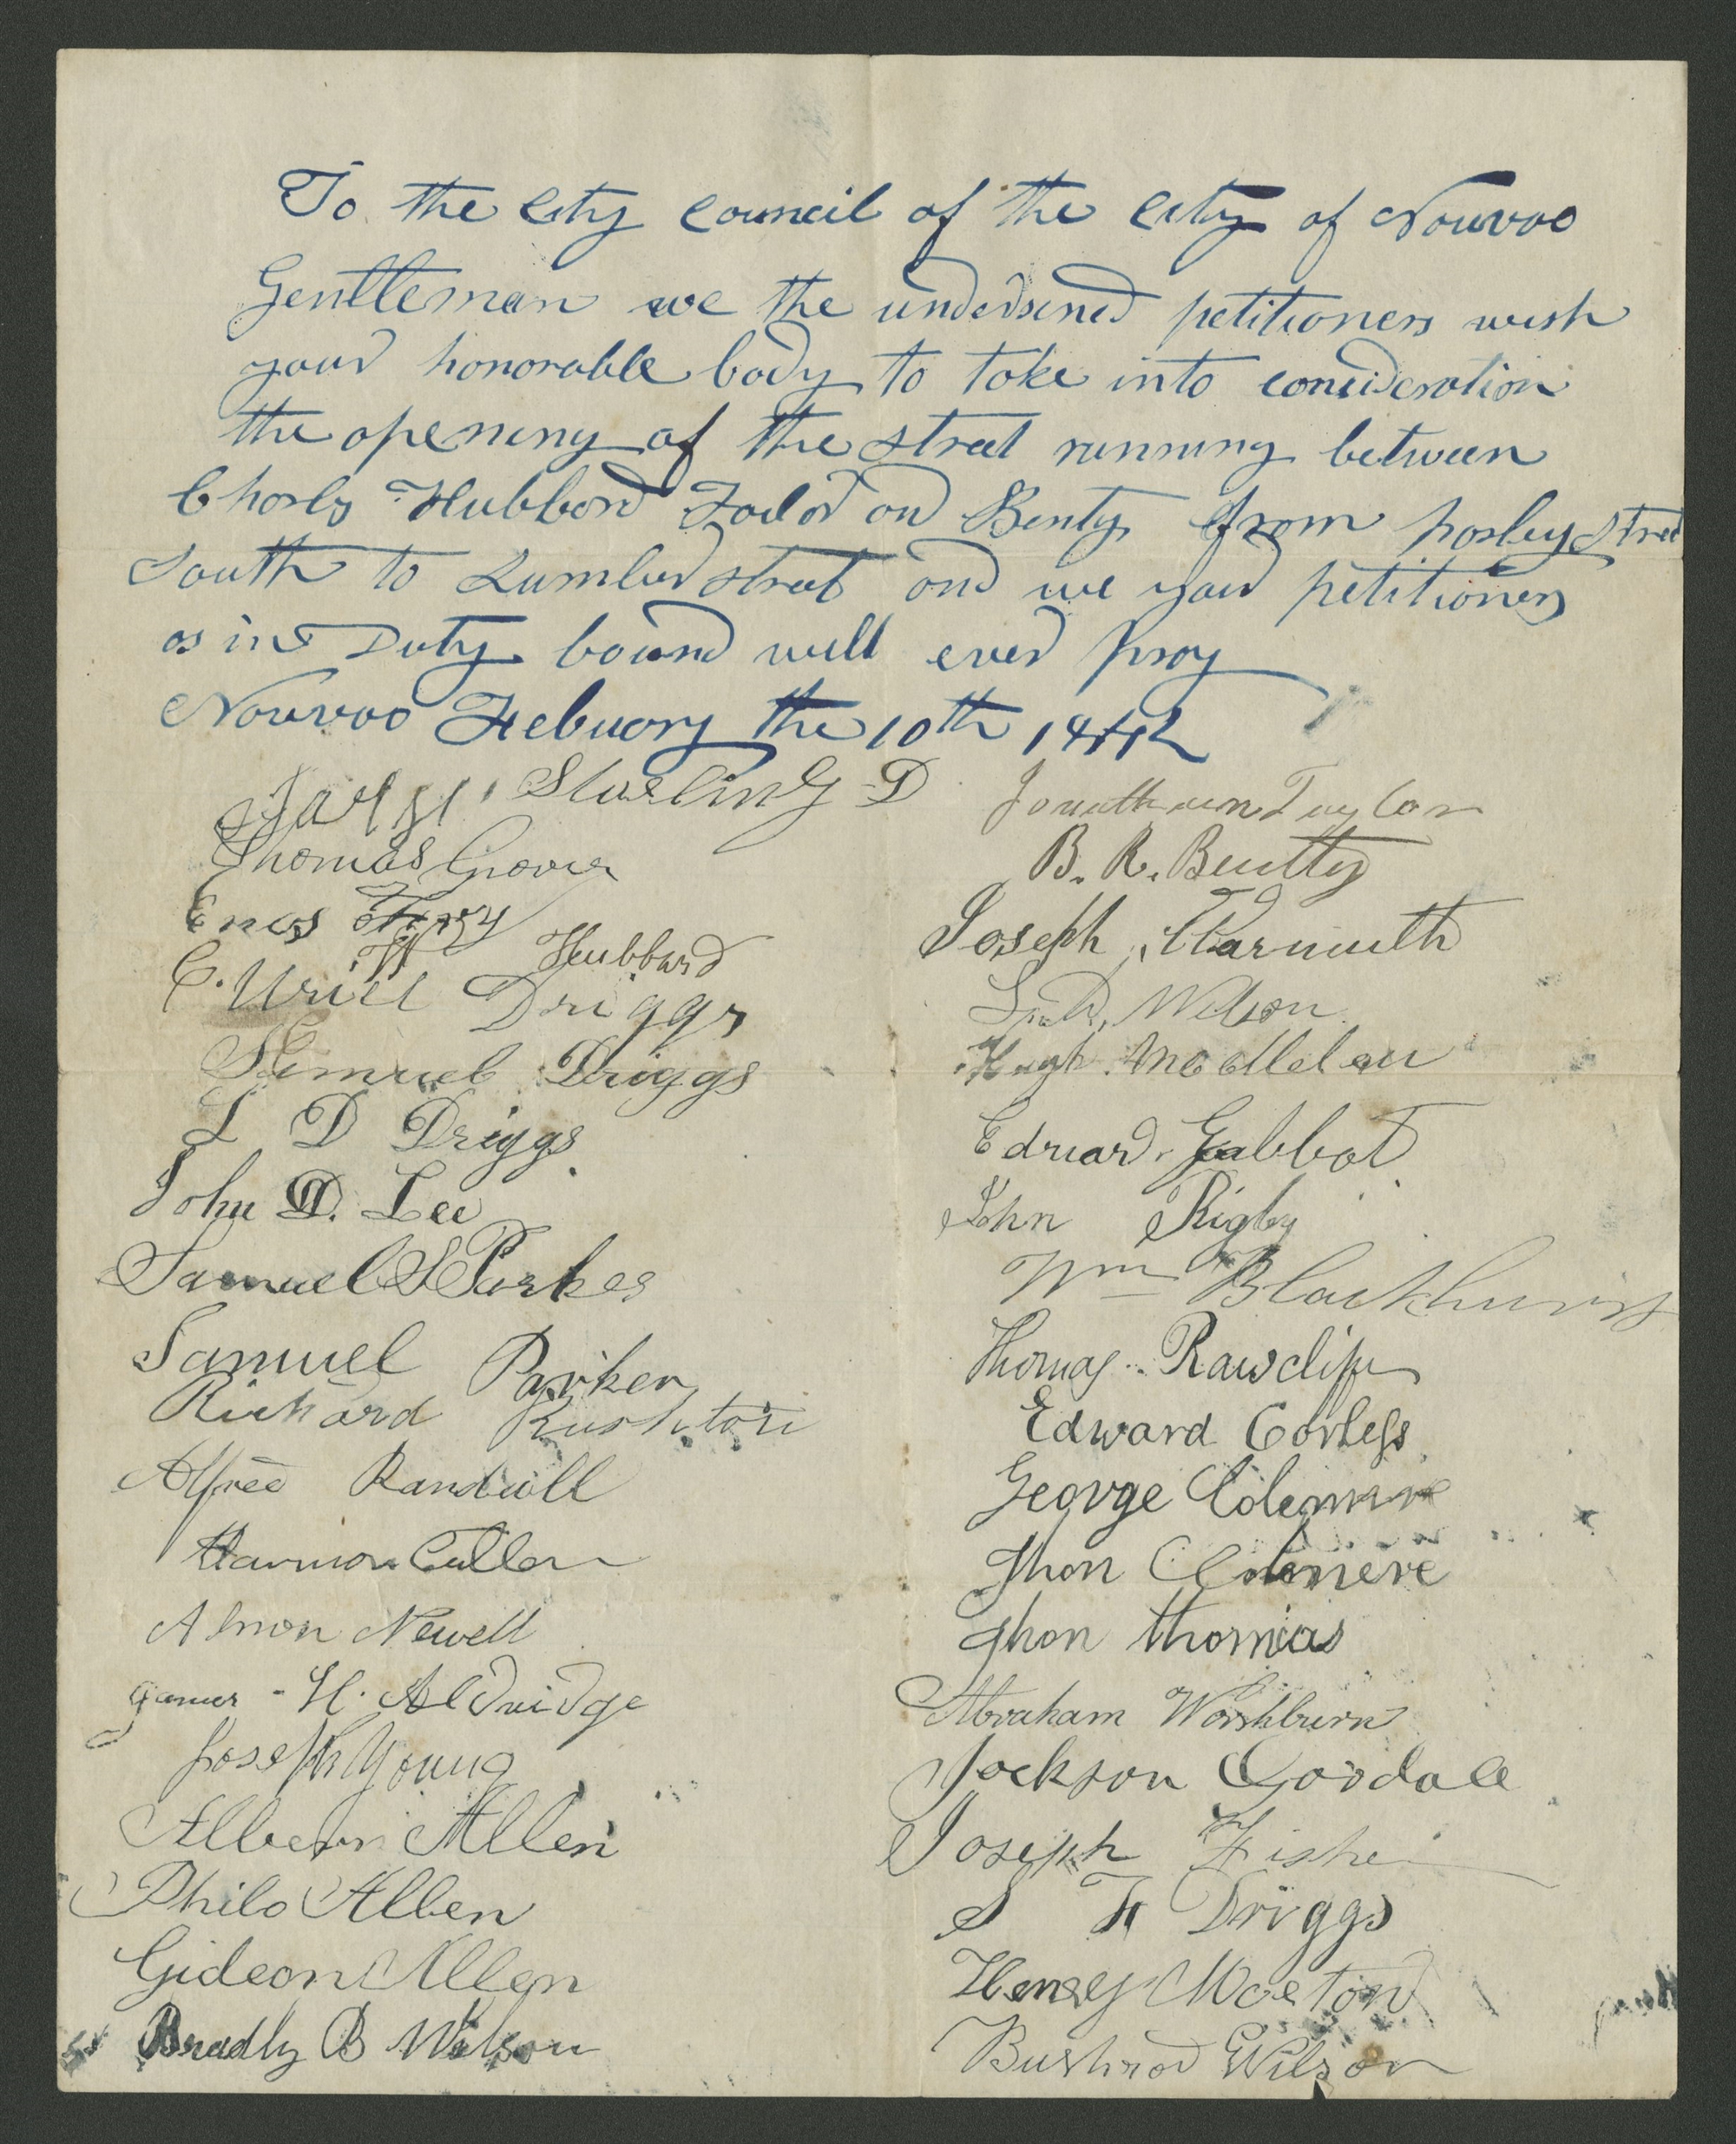 To the City Council of the City of Nouvoo
Gentleman we the undersined petitioners wish
your honorable body to take into consideration
the opening of the street running between
Charls Hubbard Tailor and Benty from parley Street
South to Lumber street and we your petitioners
as in Duty bound will ever pray
Nouvoo Febuary the 10th 1842
Starling D
Thomas Grover
Enos
C. W Hubbard
Uriel Driggs
Samuel Driggs
L D Driggs
John D. Lee
Samuel S Parker
Samuel Parker
Richard Rushton
Alfred Randall
Harmon Cutler
Almon Newell
James H. Aldridge
Joseph Young
Albern Allen
Philo Allen
Gideon Allen
Bradly B Wilson
Jonathan Taylor
B. R. Bentty
Joseph Warmuth
Wilson
Hugh
Edward Gabbot
John Rigby
Wm Blackhurst
Thomas Rawclife
Edward Corless
George Colemere
Jhon Colemere
Jhon thomas
Abraham Washburn
Jackson Goodale
Joseph Fisher
S F Driggs
Henry Moeton
Bushrod Wilson